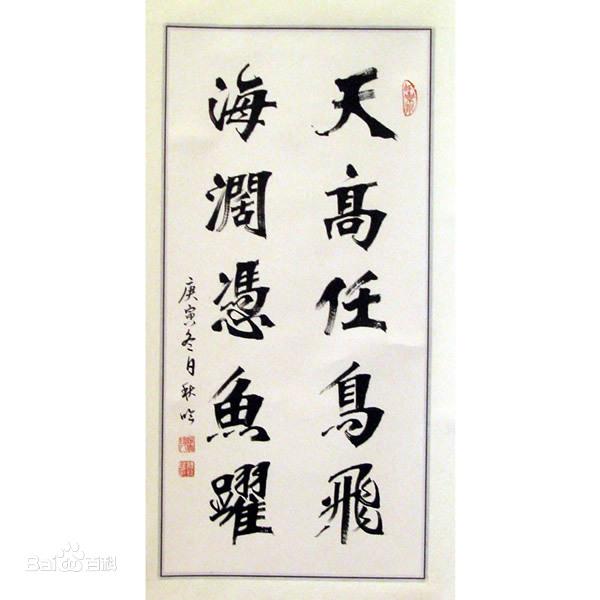 天高任鳥飛
海濶憑魚躍
庚寅冬月秋吟
Bai百科